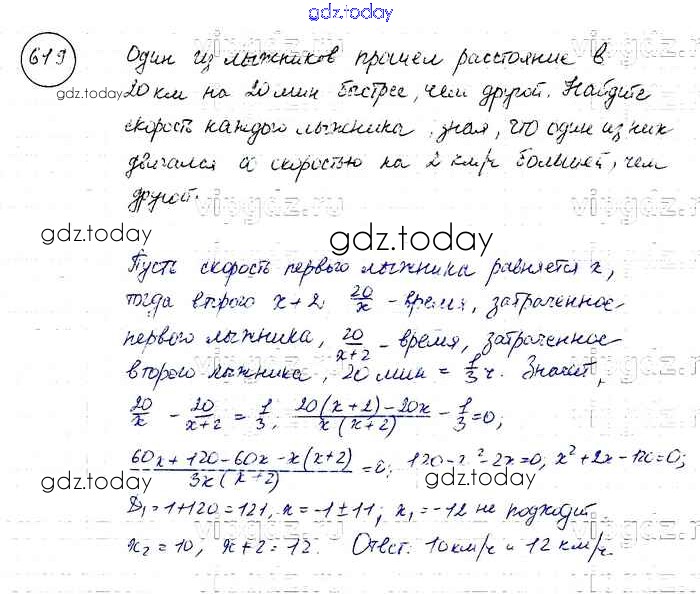 gdz.today
619 Один из лыжников прошел расстояние в
20 км на 20 мин быстрее, чем другой. Найдите
gdz.today
скорость каждого лыжника, зная, что один из них
двигался со скоростью на 2 км/ч большей, чем
другой.
vipgdz.ru
gdz.today
gdz.today
Пусть скорость первого лыжника равняется x,
тогда второго x+2. 20/x - время, затраченное
первого лыжника, 20/(x+2) - время, затраченное
второго лыжника, 20 мин = 1/3 ч. Значит,
20/x - 20/(x+2) = 1/3; (20(x+2)-20x)/(x(x+2)) - 1/3 = 0;
(60x+120-60x-x(x+2))/(3x(x+2)) = 0; 120-x²-2x=0, x²+2x-120=0;
gdz.today
gdz.today
D₁=1+120=121, x=-1±11; x₁=-12 не подходит.
x₂=10, x+2=12. Ответ: 10 км/ч и 12 км/ч.